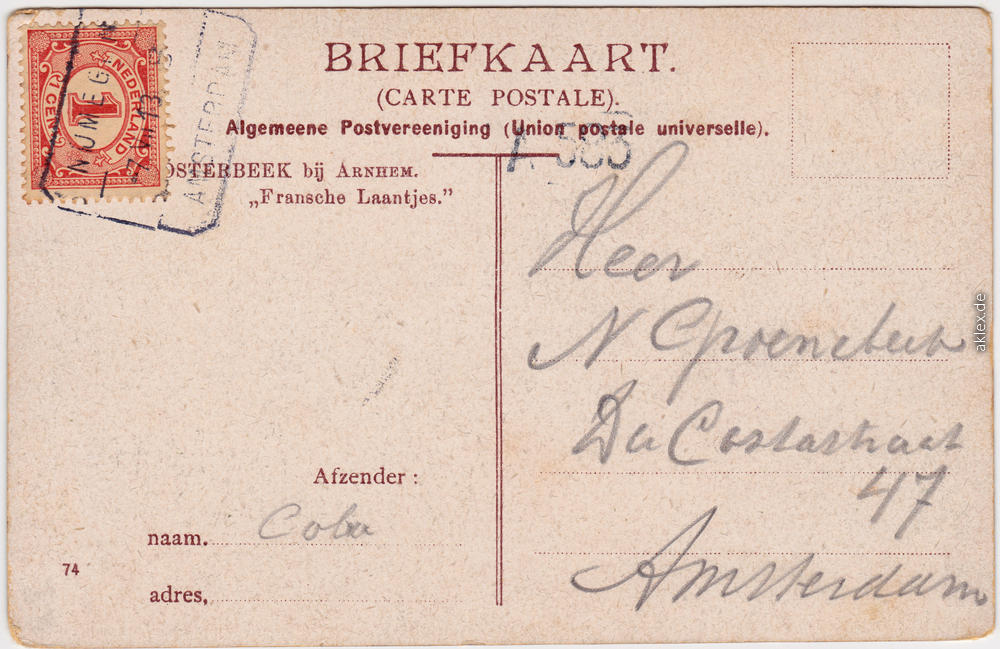 BRIEFKAART.
(CARTE POSTALE).
Algemeene Postvereeniging (Union postale universelle).
NEDERLAND
1
1 CENT
NIJMEGEN
AMSTERDAM
OOSTERBEEK bij ARNHEM.
„Fransche Laantjes.”
Heer
N
Da Costastraat
47
Amsterdam
Afzender :
naam. Coba
adres,
74
aklex.de